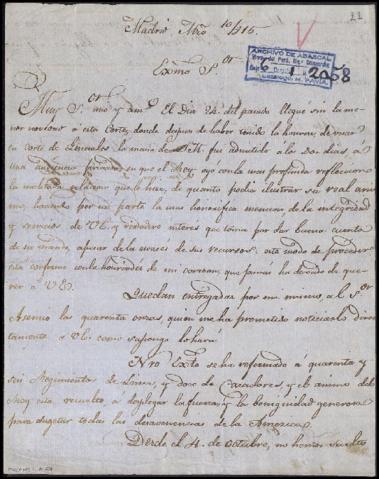 21
Madrid Nro 10/816.
ARCHIVO DE ABASCAL
6 1 2058
Exmo S.or
Muy S.or mio y am.o El Dia 24 del pasado llegué sin la me-
nor novedad á esta Corte, donde despues de haber tenido la honra de
corte de Generales la mano de S.M. fui admitido á los dos dias á
una audiencia privada en que el Rey oyó con la mas profunda reflexion
de quanto podia ilustrar su real ani-
mo, haciendo por su parte la mas honorifica mencion de la integridad
y servicios de VE. y verdadero interes que toma por dar buena cuenta
de su apesar de la de sus recursos: este modo de proceder
esta conforme con la honradez de mi corazon, que jamas ha dexado de que-
rer á VE.
Quedan entregadas por mi mismo, al S.or
Asensio las quarenta onzas, quien me ha prometido noticiarlo direc-
tamente á VE. como supongo lo hará.
Nro Exto se ha reformado á quarenta y
seis Regimientos de Linea, y doce de Cazadores, y el animo del
Rey está resuelto a desplegar la fuerza, y la benignidad generosa
para sugetar todas las desavenencias de la America.
Desde el 4. de octubre, no hemos